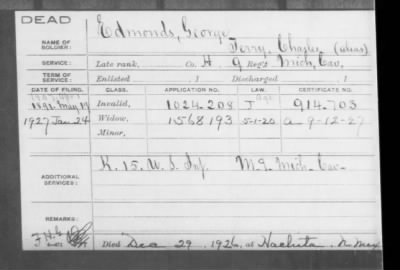 DEAD
NAME OF SOLDIER: Edmonds, George
Terry, Charles (alias)
SERVICE: Late rank, Co. H, 9 Reg't Mich. Cav.
TERM OF SERVICE: Enlisted , 1 Discharged , 1
DATE OF FILING. CLASS. APPLICATION NO. LAW. CERTIFICATE NO.
1892 May 19 Invalid, 1024.208 J 914.703
1927 Jan 24 Widow, 1568193 5-1-20 a 9-12-27
Minor,
ADDITIONAL SERVICES: K. 15. U. S. Inf. M. 9. Mich. Cav.
REMARKS:
Died Dec 29, 1926, at Hachita, N. Mex